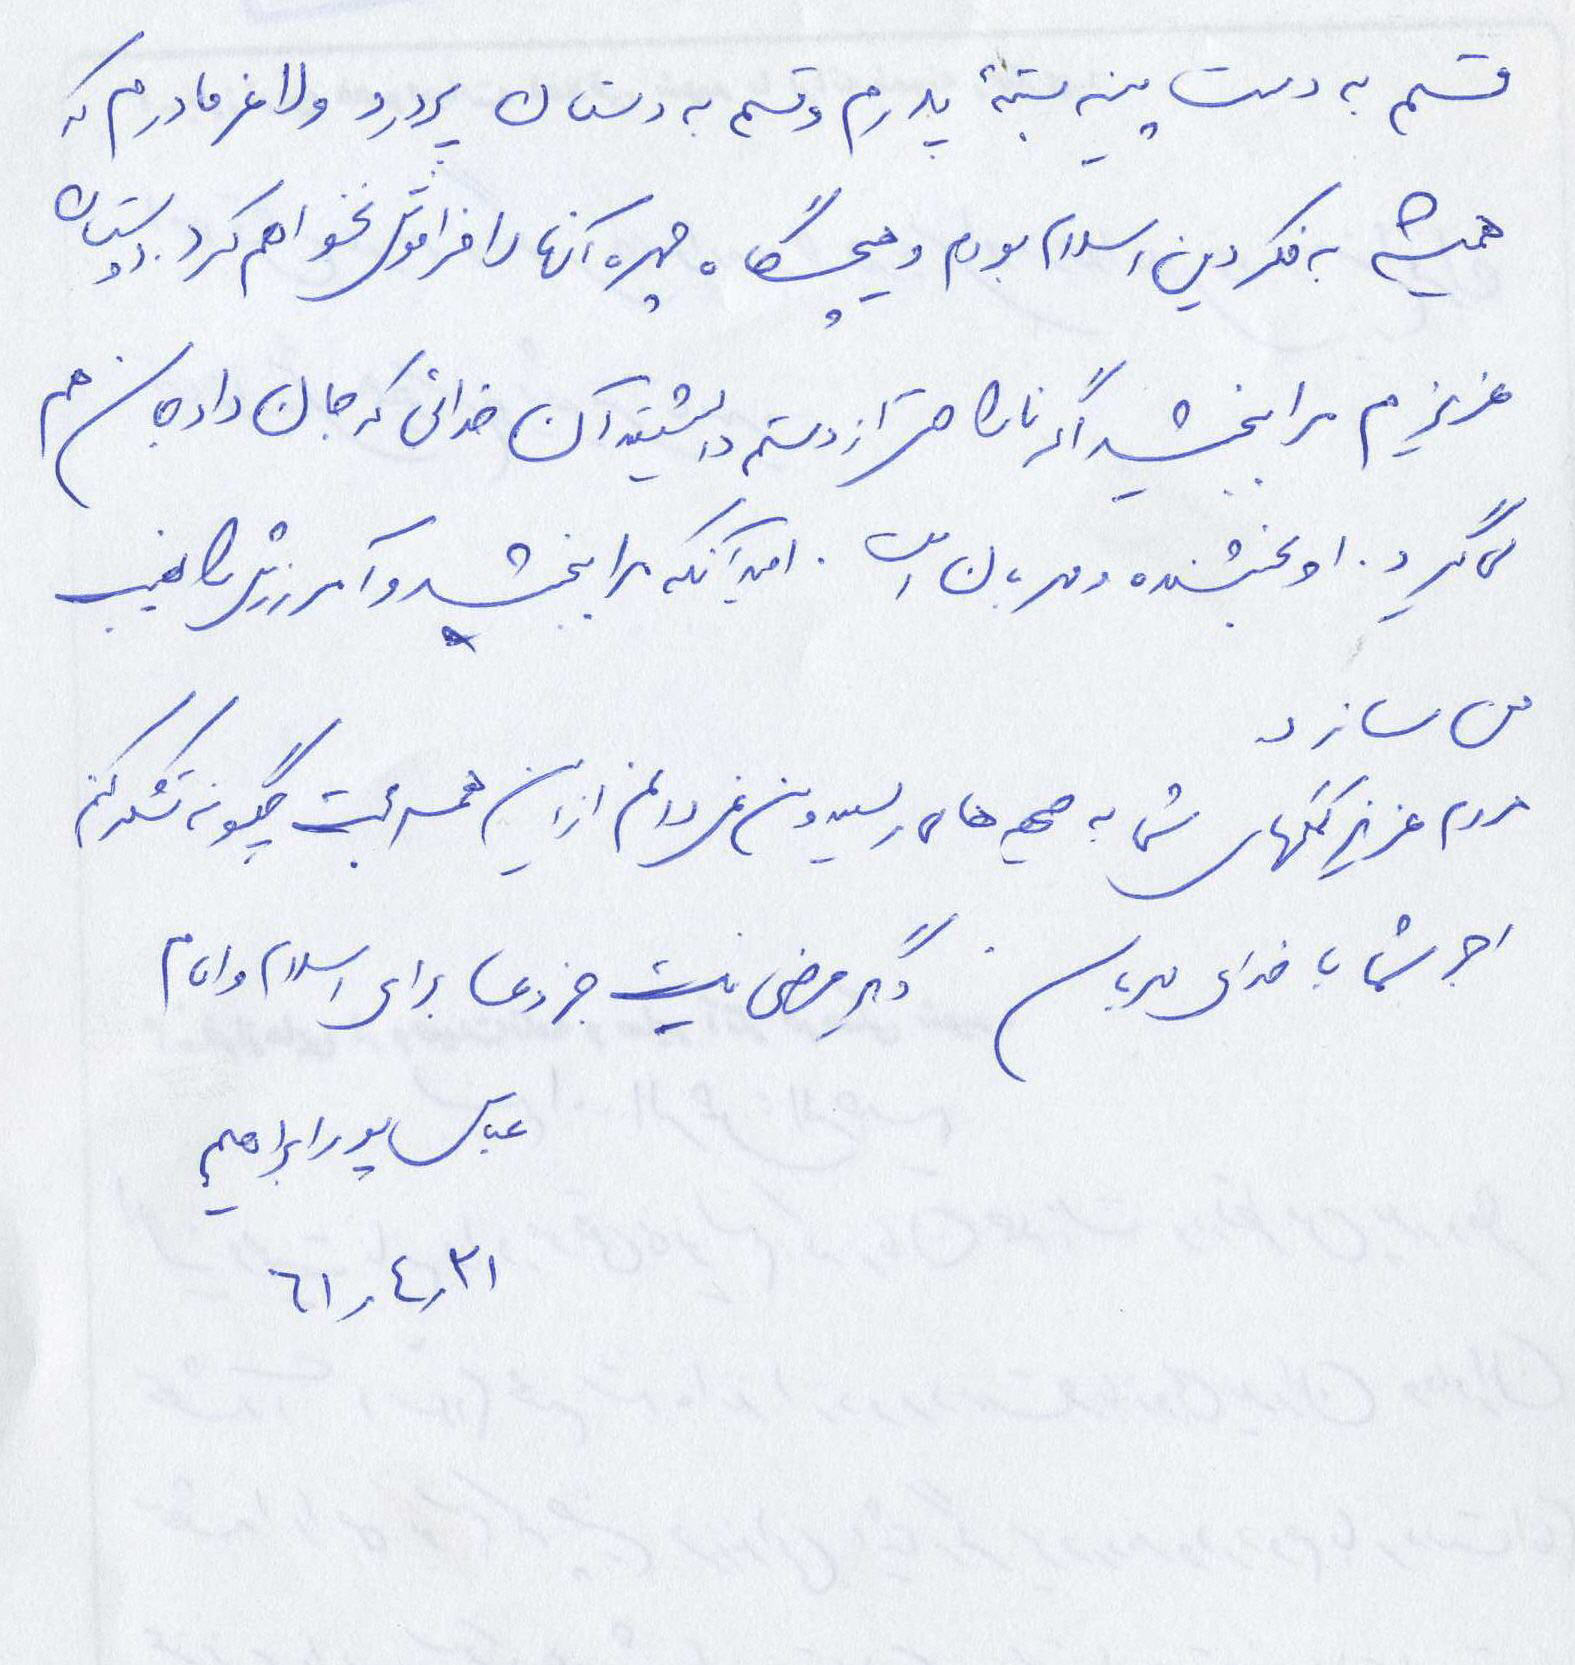 قسم به دست پینه بستهٔ پدرم و قسم به دستان پردرد و لاغر مادرم که
همیشه به فکر دین اسلام بودم و هیچگاه چهره آنها را فراموش نخواهم کرد. دوستان
عزیزم مرا ببخشید اگر ناراحتی از دستم داشتید آن خدائی که جان داده جان هم
می گیرد. او بخشنده و مهربان است. امید آنکه مرا ببخشید و آمرزش را نصیب
من سازد
مردم عزیز کمکهای شما به جبهه های رسید و من نمی دانم از این همه محبت چگونه تشکر کنم
اجر شما با خدای مهربان. دگر عرضی نیست جز دعا برای اسلام و امام
عباس پور ابراهیم
۶۱٫۴٫۳۱